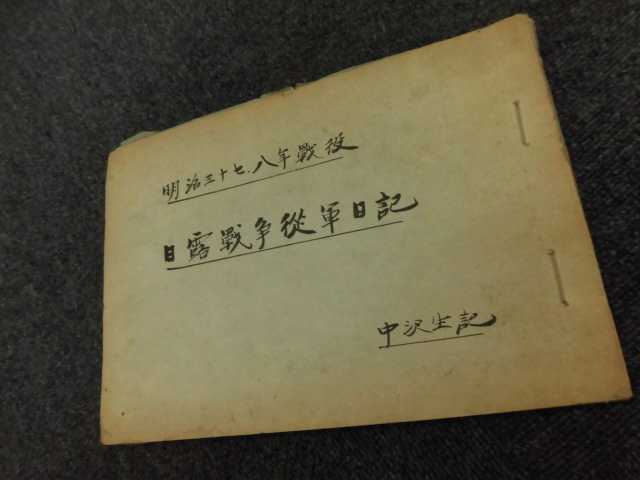 明治三十七、八年戰役
日露戰争從軍日記
中沢生記